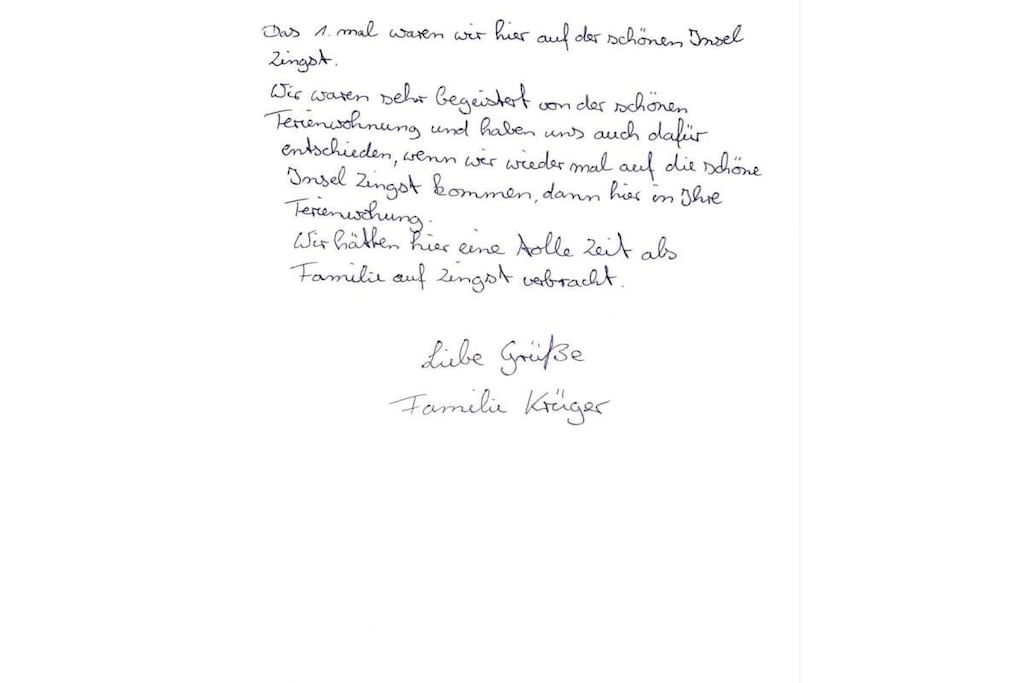 Das 1. mal waren wir hier auf der schönen Insel
Zingst.
Wir waren sehr begeistert von der schönen
Ferienwohnung und haben uns auch dafür
entschieden, wenn wir wieder mal auf die schöne
Insel Zingst kommen, dann hier in Ihre
Ferienwohung.
Wir hätten hier eine tolle Zeit als
Familie auf Zingst verbracht.
Liebe Grüße
Familie Krüger